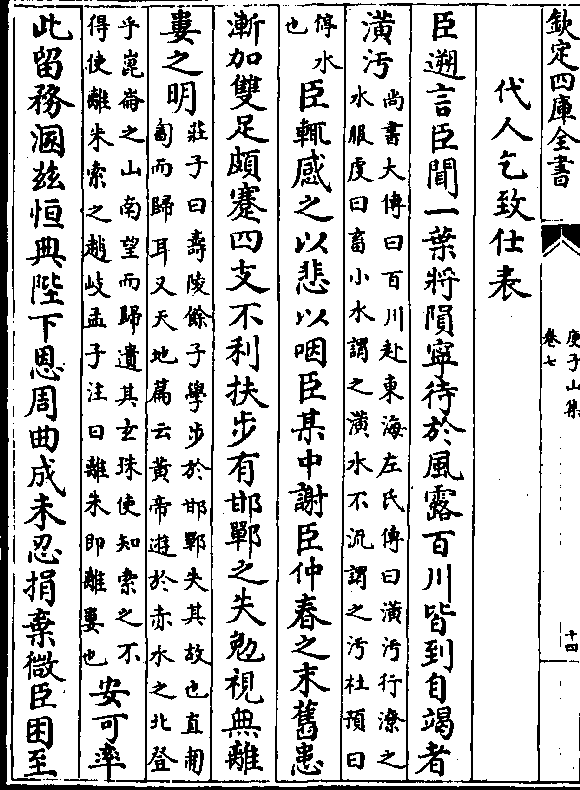 欽定四庫全書
庾子山集
卷七
十四
代人乞致仕表
臣遡言臣聞一葉將隕寧待於風露百川皆到自竭者
潢汚尚書大傳曰百川赴東海左氏傳曰潢汚行潦之
水服䖍曰畜小水謂之潢水不流謂之汚杜預曰
停水
也臣輒感之以悲以咽臣某中謝臣仲春之末舊患
漸加雙足頗蹇四支不利扶步有邯鄲之失勉視無離
婁之明莊子曰壽陵餘子學步於邯鄲失其故也直匍
匐而歸耳又天地篇云黄帝遊於赤水之北登
乎崑崙之山南望而歸遺其玄珠使知索之不
得使離朱索之趙岐孟子注曰離朱即離婁也安可率
此留務溷玆恒典陛下恩周曲成未忍捐棄微臣困至